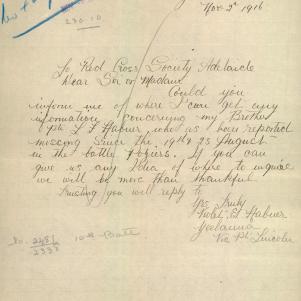 Nov. 2nd 1916
230.10
To Red Cross Society Adelaide
Dear Sir or Madam
Could you
inform me of where I can get any
information concerning my Brother
Pte L F Habner who as been reported
missing since the 19th & 23 August
in the battle Poziers. If you can
give us any idea of where to inquire
we will be more than thankful
Trusting you will reply to
Yrs Truly
Violet E Habner
Yeelanna
Via Pt Lincoln
10th Batt